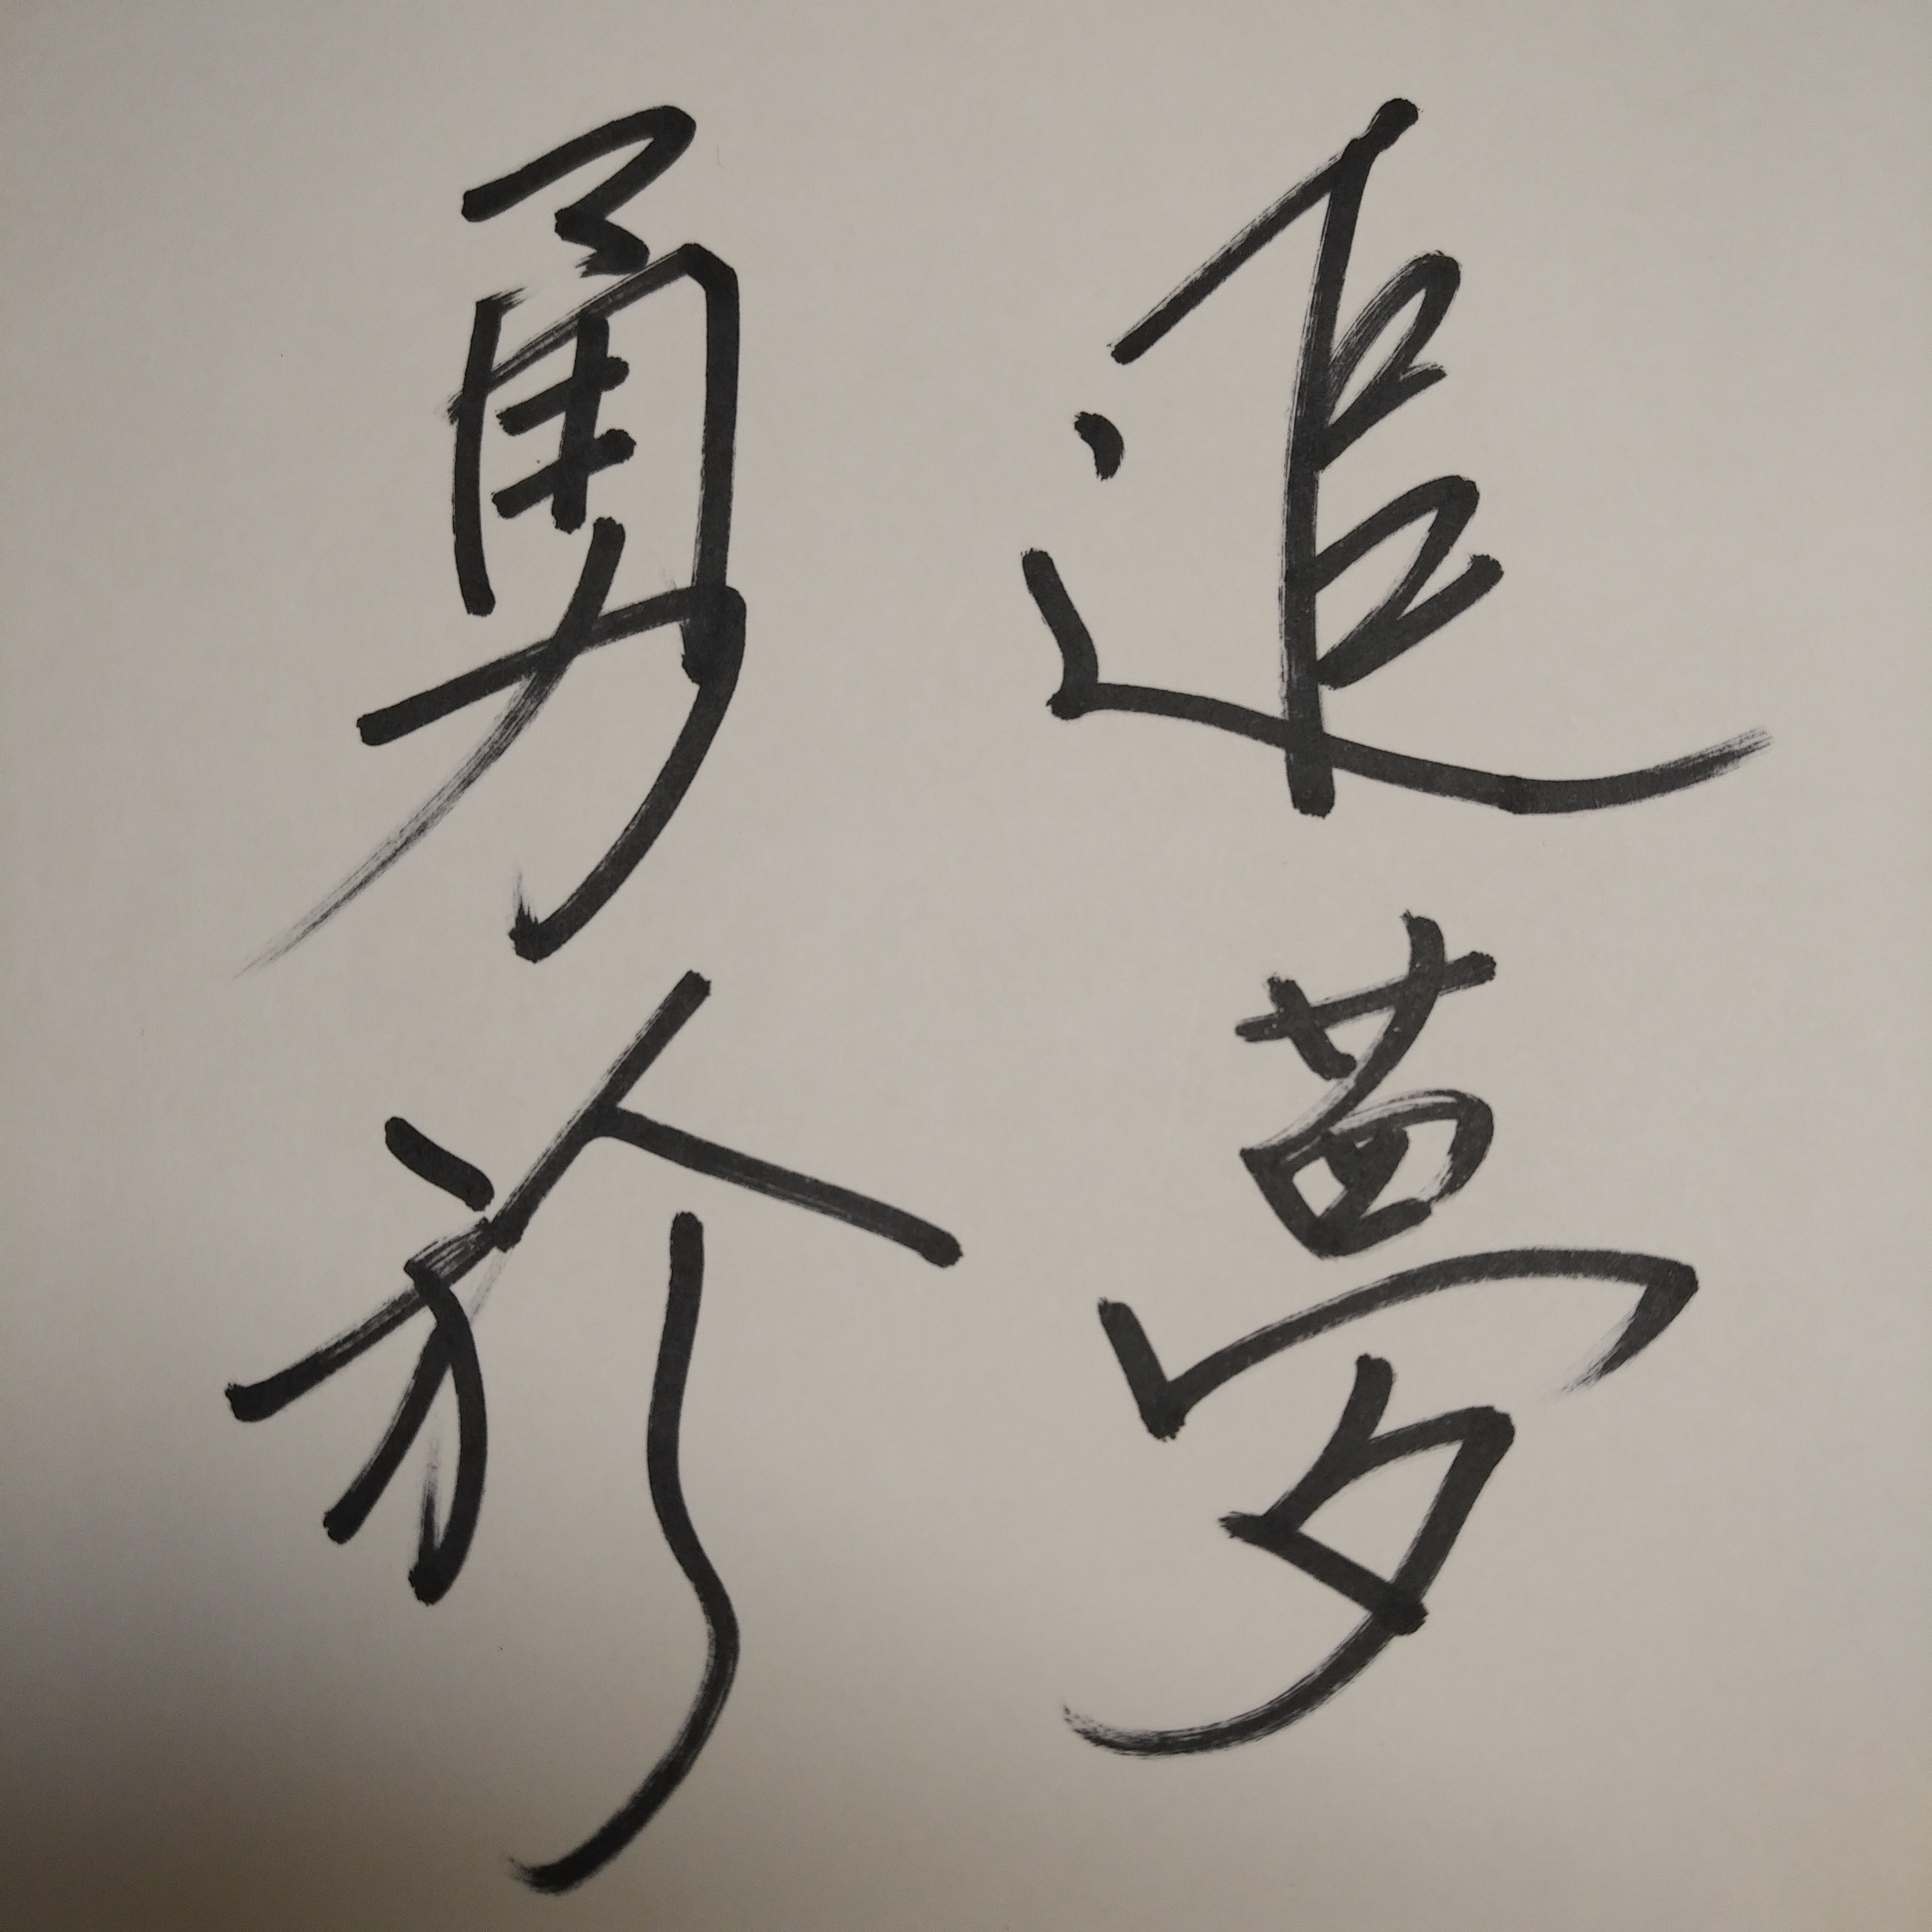 勇於
追夢